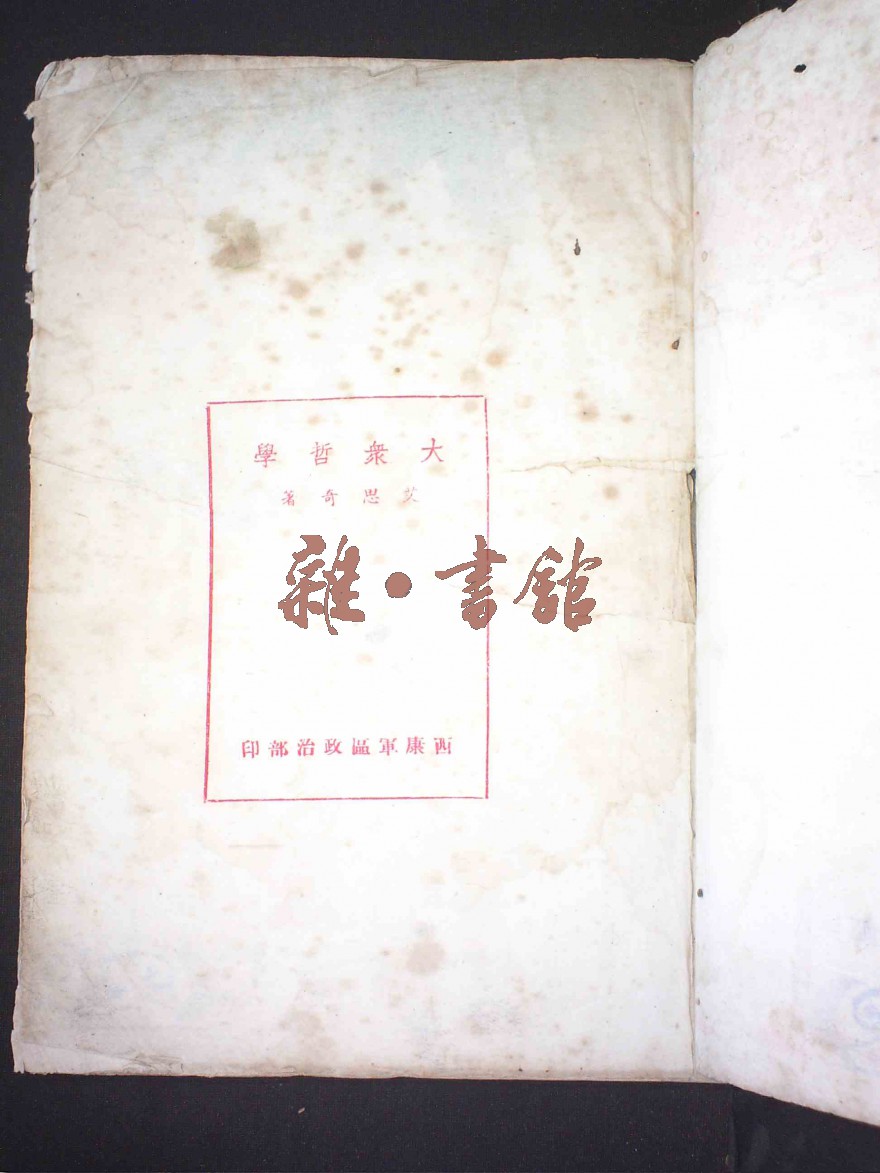 大衆哲學
艾思奇著
雜·書館
西康軍區政治部印